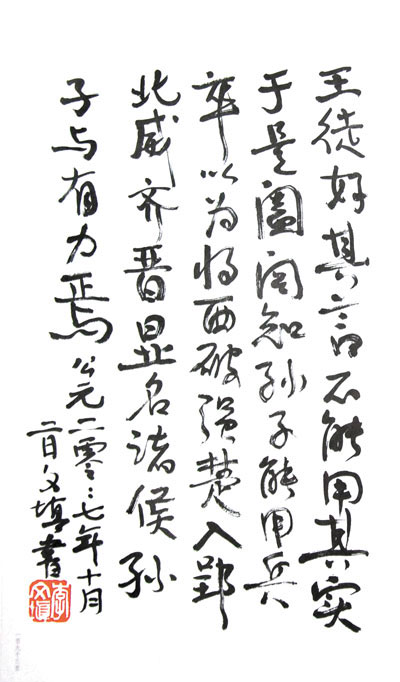 王徒好其言不能用其实
于是阖闾知孙子能用兵
卒以为将西破强楚入郢
北威齐晋显名诸侯孙
子与有力焉 公元二零零七年十月
二日文填書